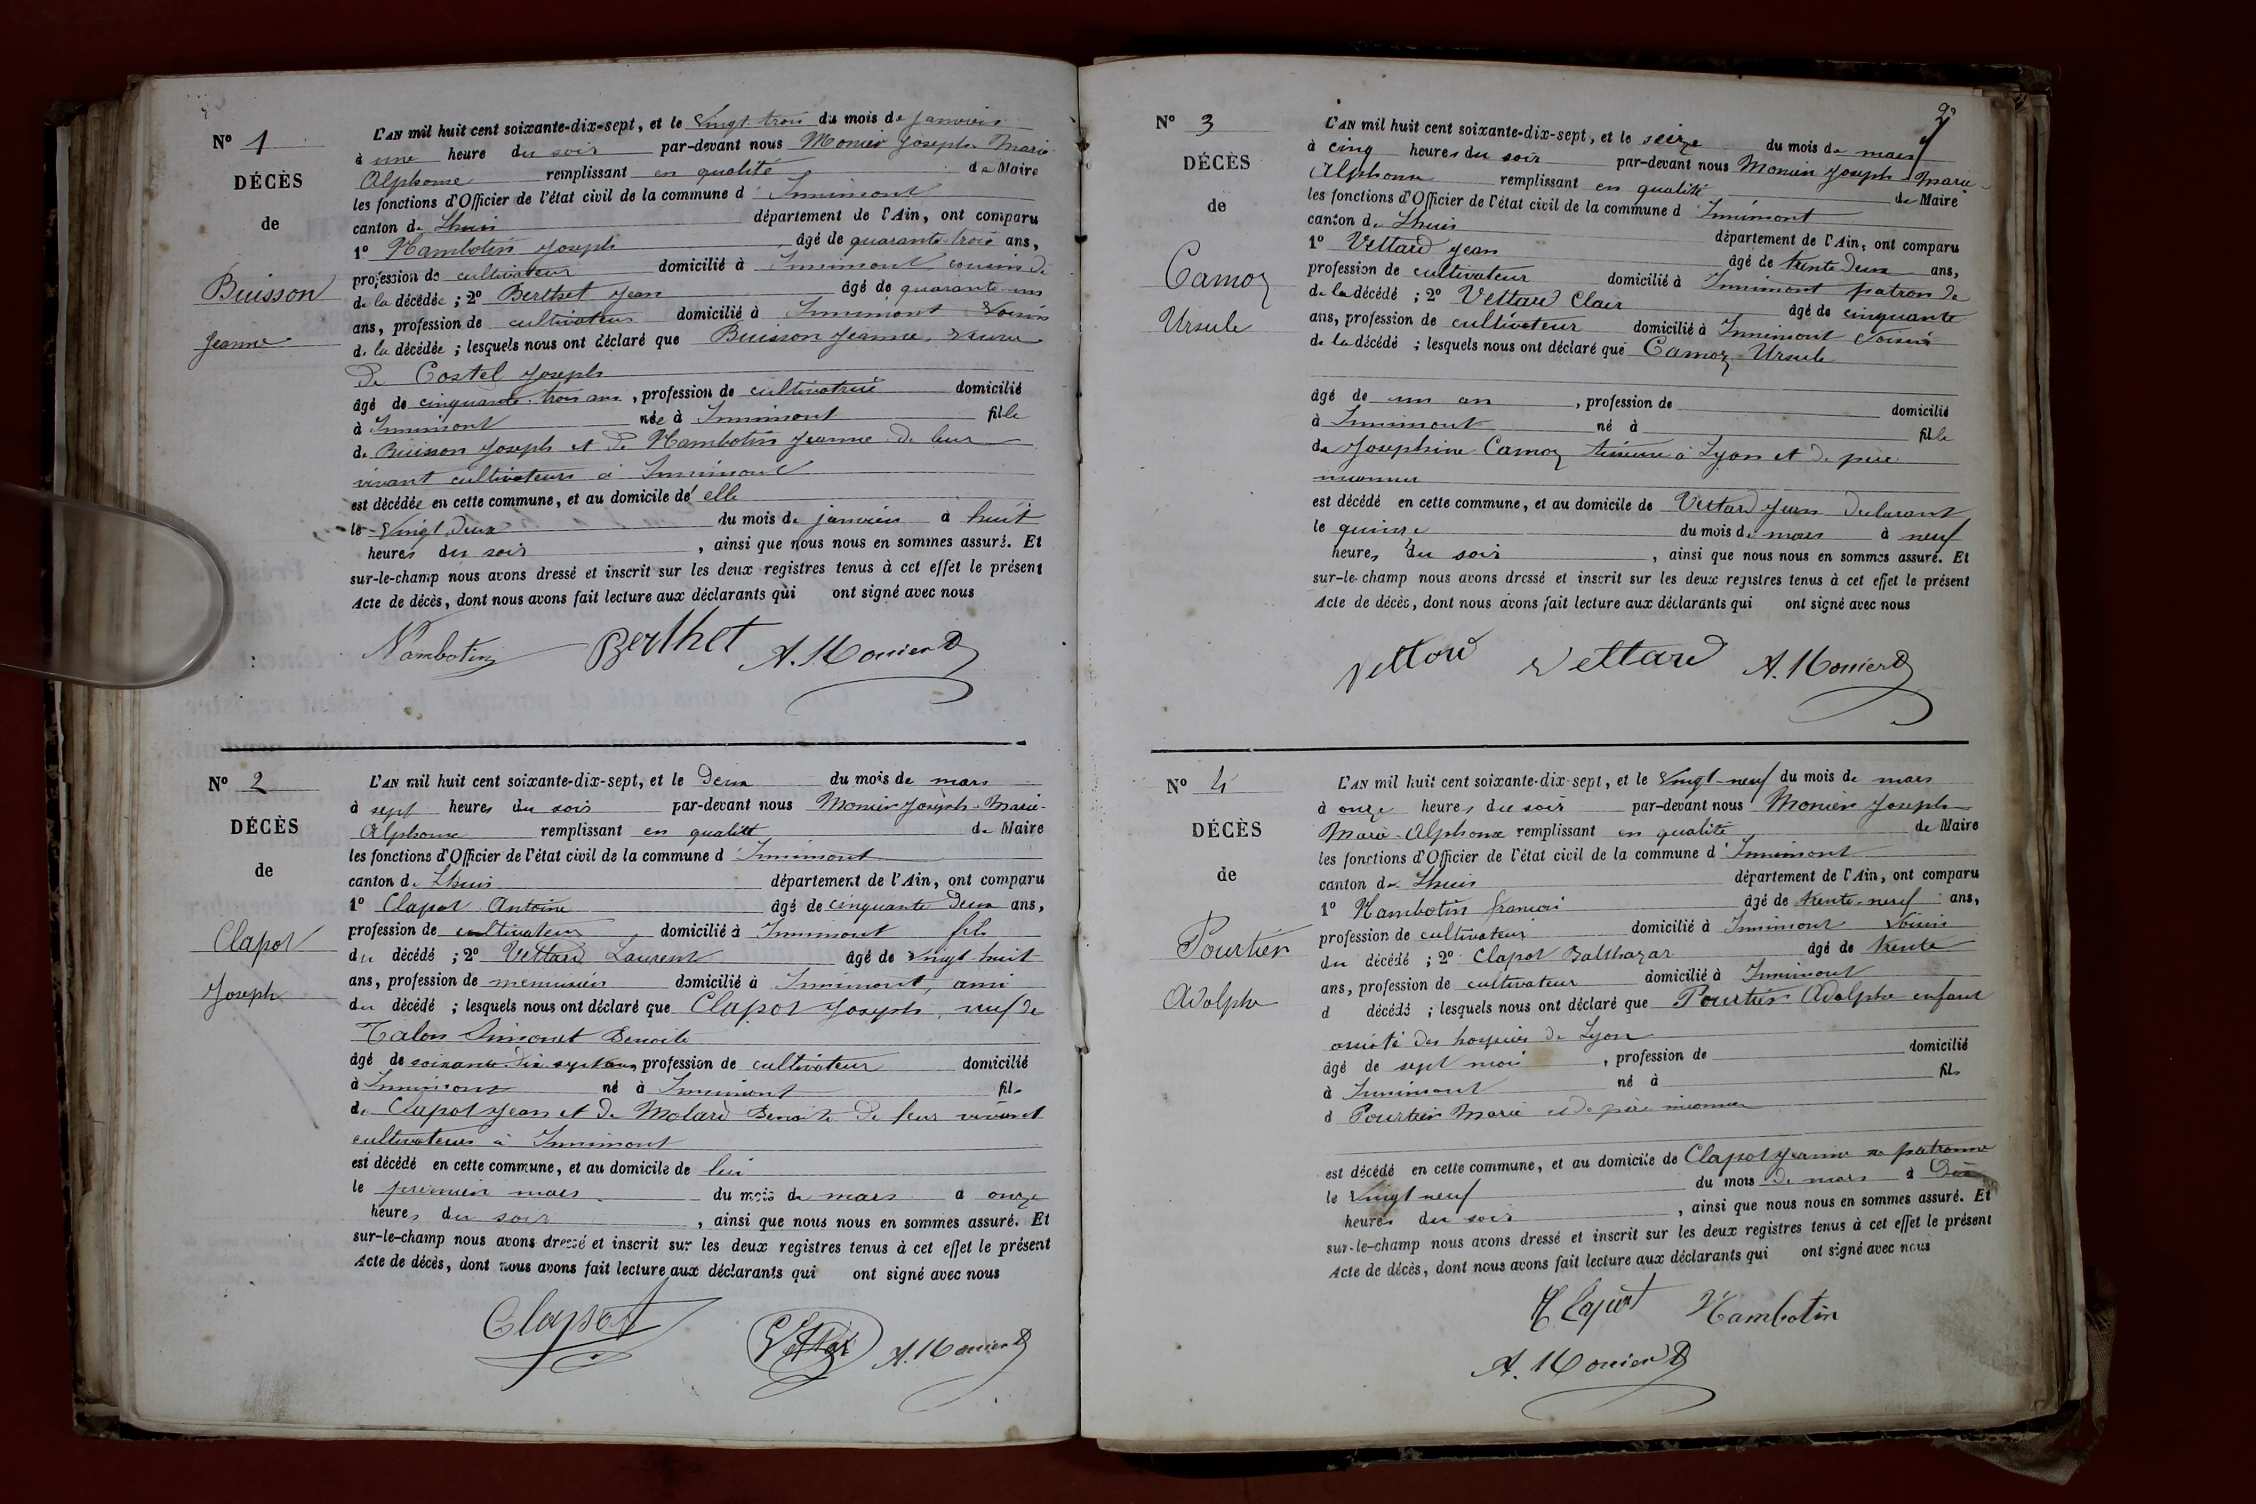 Nº 1
DÉCÈS
de
Buisson
Jeanne
L'AN mil huit cent soixante-dix-sept, et le vingt trois du mois de janvier
à une heure du soir par-devant nous Monier Joseph Marie
Alphonse remplissant en qualité de Maire
les fonctions d'Officier de l'état civil de la commune d'Innimont
canton de Lhuis département de l'Ain, ont comparu
1º Nambotin Joseph âgé de quarante trois ans,
profession de cultivateur domicilié à Innimont cousin de
de la décédée ; 2º Berthet Jean âgé de quarante un
ans, profession de cultivateur domicilié à Innimont voisin
de la décédée ; lesquels nous ont déclaré que Buisson Jeanne, veuve
de Costel Joseph
âgé de cinquante trois ans, profession de cultivatrice domicilié
à Innimont née à Innimont fille
de Buisson Joseph et de Nambotin Jeanne de leur
vivant cultivateurs à Innimont
est décédée en cette commune, et au domicile de elle
le vingt deux du mois de janvier à huit
heures du soir, ainsi que nous nous en sommes assuré. Et
sur-le-champ nous avons dressé et inscrit sur les deux registres tenus à cet effet le présent
Acte de décès, dont nous avons fait lecture aux déclarants qui ont signé avec nous
Nambotin Berthet A. Monier
Nº 2
DÉCÈS
de
Clapot
Joseph
L'AN mil huit cent soixante-dix-sept, et le deux du mois de mars
à sept heures du soir par-devant nous Monier Joseph-Marie-
Alphonse remplissant en qualité de Maire
les fonctions d'Officier de l'état civil de la commune d'Innimont
canton de Lhuis département de l'Ain, ont comparu
1º Clapot Antoine âgé de cinquante deux ans,
profession de cultivateur domicilié à Innimont fils
du décédé ; 2º Vettard Laurent âgé de vingt huit
ans, profession de menuisier domicilié à Innimont, ami
du décédé ; lesquels nous ont déclaré que Clapot Joseph, veuf de
Talon Simonet Benoite
âgé de soixante dix sept ans, profession de cultivateur domicilié
à Innimont né à Innimont fils
de Clapot Jean et de Molard Benoite de leur vivant
cultivateurs à Innimont
est décédé en cette commune, et au domicile de lui
le premier mars du mois de mars à onze
heures du soir, ainsi que nous nous en sommes assuré. Et
sur-le-champ nous avons dressé et inscrit sur les deux registres tenus à cet effet le présent
Acte de décès, dont nous avons fait lecture aux déclarants qui ont signé avec nous
Clapot A. Monier
2
Nº 3
DÉCÈS
de
Camoz
Ursule
L'AN mil huit cent soixante-dix-sept, et le seize du mois de mars
à cinq heures du soir par-devant nous Monier Joseph-Marie-
Alphonse remplissant en qualité de Maire
les fonctions d'Officier de l'état civil de la commune d'Innimont
canton de Lhuis département de l'Ain, ont comparu
1º Vettard Jean âgé de trente deux ans,
profession de cultivateur domicilié à Innimont patron de
de la décédé ; 2º Vettard Clair âgé de cinquante
ans, profession de cultivateur domicilié à Innimont voisin
de la décédé ; lesquels nous ont déclaré que Camoz Ursule
âgé de un an, profession de domicilié
à Innimont né à fille
de Josephine Camoz à Lyon et de père
inconnu
est décédé en cette commune, et au domicile de Vettard Jean déclarant
le quinze du mois de mars à neuf
heures du soir, ainsi que nous nous en sommes assuré. Et
sur-le-champ nous avons dressé et inscrit sur les deux registres tenus à cet effet le présent
Acte de décès, dont nous avons fait lecture aux déclarants qui ont signé avec nous
Vettard Vettard A. Monier
Nº 4
DÉCÈS
de
Pourtier
Adolphe
L'AN mil huit cent soixante-dix-sept, et le vingt-neuf du mois de mars
à onze heures du soir par-devant nous Monier Joseph
Marie-Alphonse remplissant en qualité de Maire
les fonctions d'Officier de l'état civil de la commune d'Innimont
canton de Lhuis département de l'Ain, ont comparu
1º Nambotin françois âgé de trente-neuf ans,
profession de cultivateur domicilié à Innimont voisin
du décédé ; 2º Clapot Balthazar âgé de trente
ans, profession de cultivateur domicilié à Innimont
d décédé ; lesquels nous ont déclaré que Pourtier Adolphe enfant
assisté des hospices de Lyon
âgé de sept mois, profession de domicilié
à Innimont né à fils
d Pourtier Marie et de père inconnu
est décédé en cette commune, et au domicile de Clapot Jeanne sa patronne
le vingt neuf du mois de mars à dix
heures du soir, ainsi que nous nous en sommes assuré. Et
sur-le-champ nous avons dressé et inscrit sur les deux registres tenus à cet effet le présent
Acte de décès, dont nous avons fait lecture aux déclarants qui ont signé avec nous
Clapot Nambotin
A. Monier